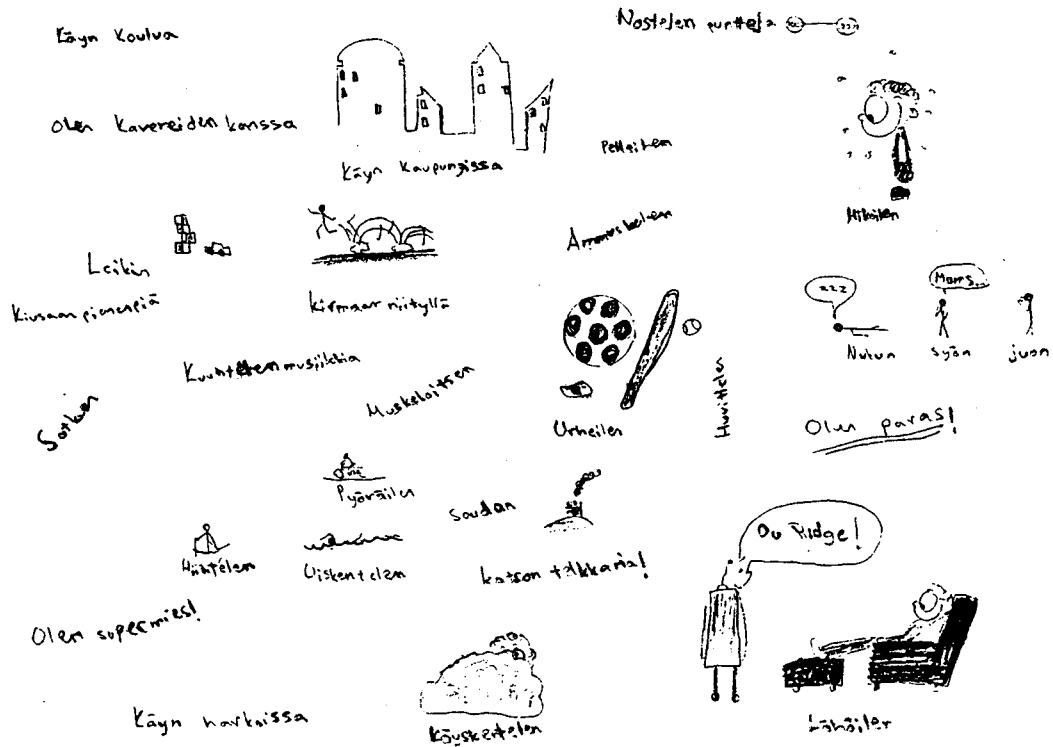 Käyn koulua
Nostelen puntteja
Olen kavereiden kanssa
Käyn kaupungissa
Hikoilen
Leikin
Kiusaan pienempiä
Kirmaan niityllä
zzz
Nukun
Syön
juon
Kuuntelen musiikkia
Muskeloitsen
Urheilen
Huvittelen
Olen paras!
Sotken
Pyöräilen
Soudan
Hiihtelen
Uiskentelen
katson telkkaria!
Olen supermies!
Käyn harkoissa
Köyskentelen
Löhöilen